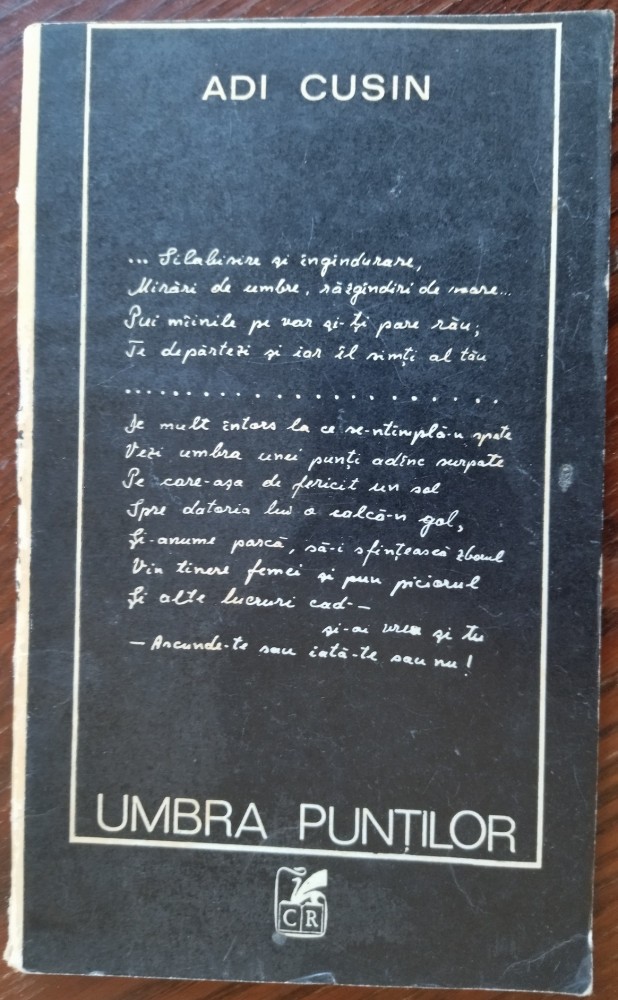 ADI CUSIN
... Silabisire și îngîndurare,
Mirări de umbre, răzgîndiri de soare...
Pui mîinile pe var și-ți pare rău;
Te depărtezi și iar îl simți al tău
......................
De mult întors la ce se-ntîmplă-n spate
Vezi umbra unei punți adînc surpate
Pe care-așa de fericit un sol
Spre datoria lui o calcă-n gol,
Și-anume parcă, să-i sfințească zborul
Vin tinere femei și pun piciorul
Și alte lucruri cad --
și-ai vrea și tu
— Ascunde-te sau iată-te sau nu!
UMBRA PUNȚILOR
CR